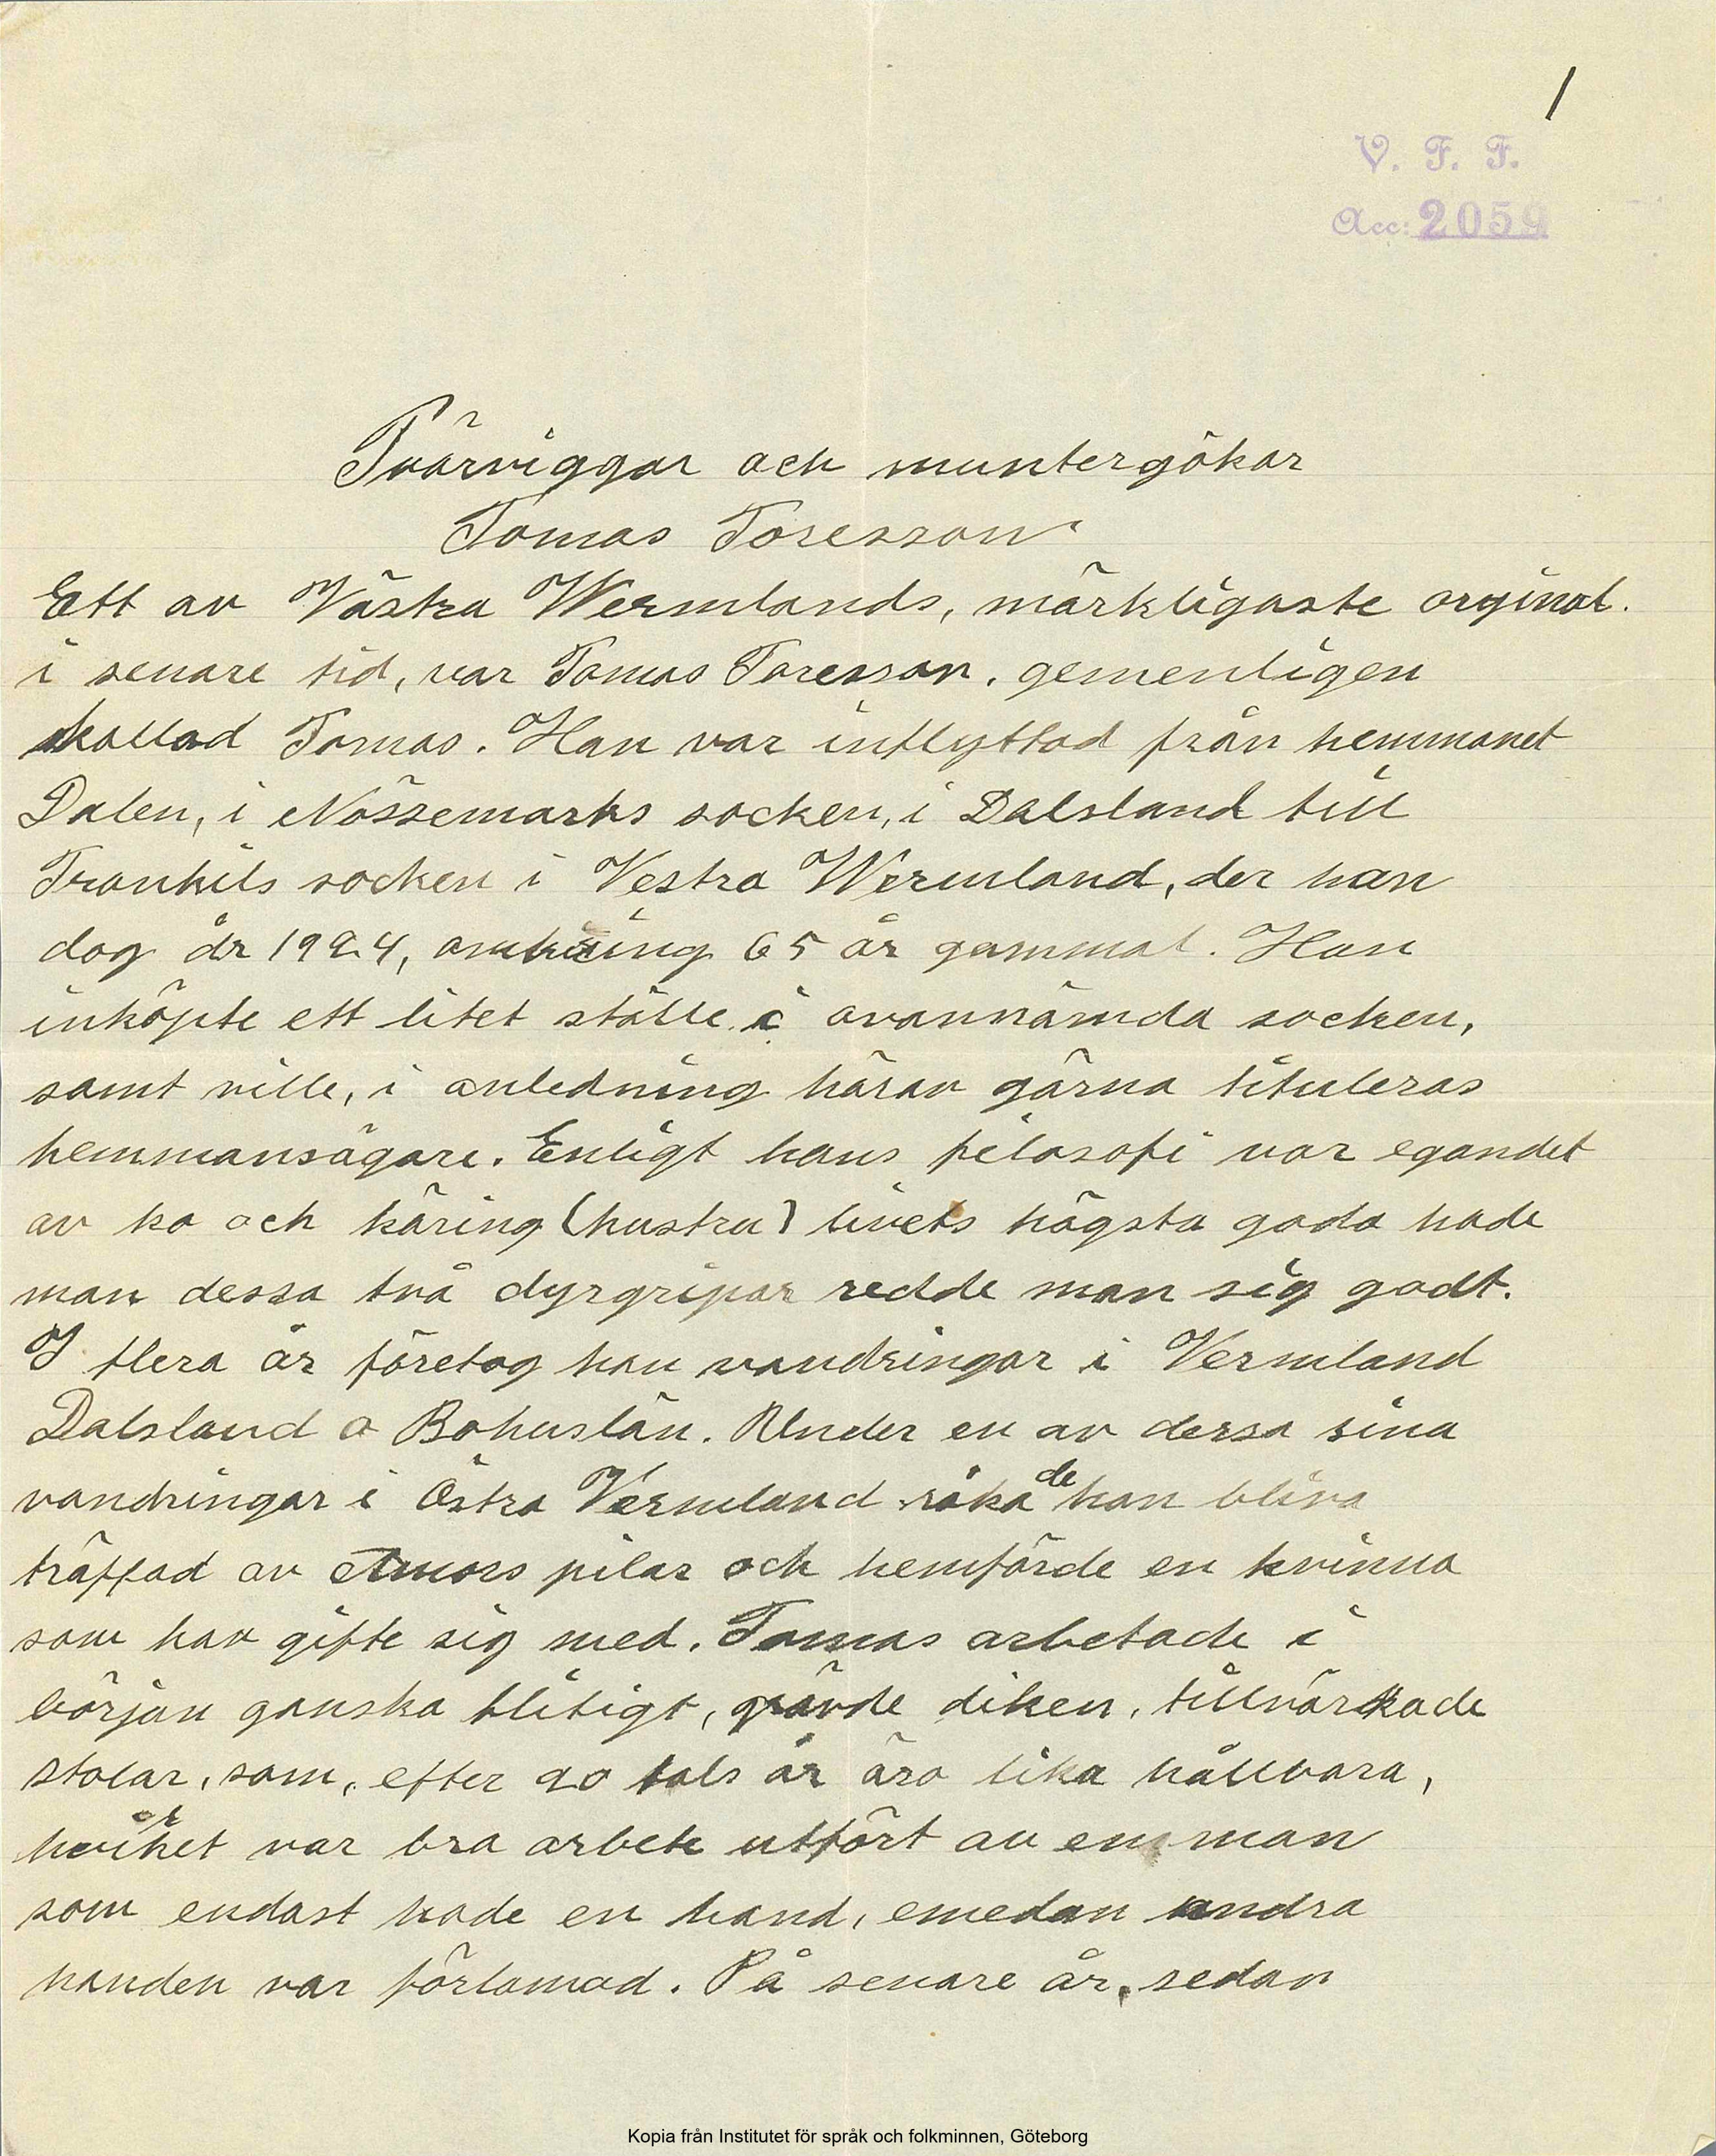 1
V. F. F.
Acc: 2059
Tvärviggar och muntergökar
Tomas Toresson
Ett av Västra Wermlands, märkligaste orginal.
i senare tid, var Tomas Toresson, gemenligen
kallad Tomas. Han var inflyttad från hemmanet
Dalen, i Nössemarks socken, i Dalsland till
Trankils socken i Vestra Wermland, der han
dog år 1924, omkring 65 år gammal. Han
inköpte ett litet ställe i ovannämda socken,
samt ville, i anledning härav gärna tituleras
hemmansägare. Enligt hans filosofi var egandet
av ko och käring (hustru) livets högsta goda hade
man dessa två dyrgripar redde man sig godt.
I flera år företog han vandringar i Vermland
Dalsland o Bohuslän. Under en av dessa sina
vandringar i Östra Vermland råkade han bliva
träffad av Amors pilar och hemförde en kvinna
som han gifte sig med. Tomas arbetade i
början ganska flitigt, grävde diken, tillvärkade
stolar, som, efter 20 tals år äro lika hållbara,
hvilket var bra arbete utfört av en man
som endast hade en hand, emedan andra
handen var förlamad. På senare år, sedan
Kopia från Institutet för språk och folkminnen, Göteborg